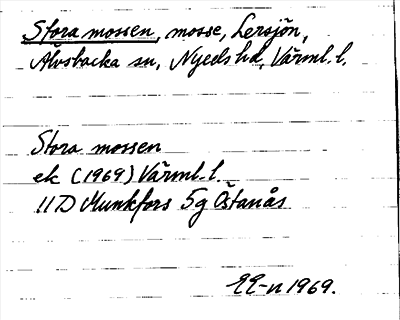 Stora mossen, mosse, Lersjön,
Älvsbacka sn, Nyeds hd, Värml. l.
Stora mossen
ek (1969) Värml. l.
11D Munkfors 5g Östanås
EE-n 1969.